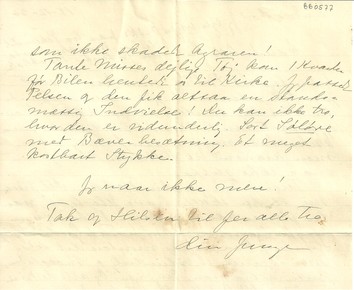 660577
som ikke skadede Agraren!
Tante Misses dejlige Tøj kom 1 Kvarter
før Bilen hentede os til Kirke. Jeg passede
Pelsen og den fik altsaa en standsmæssig Indvielse! Du kan ikke tro,
hvor den er vidunderlig. Sort
med Bæverbesætning. Et meget
kostbart Stykke.
Jeg naar ikke mere!
Tak og Hilsen til Jer alle Tre.
din